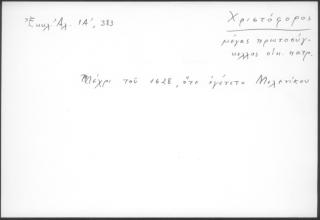 Ἐκκλ. Ἀλ. ΙΑ', 383
Χριστόφορος
μέγας πρωτοσύγ-
κελλος οἰκ. πατρ.
Μέχρι τοῦ 1628, ὅτε ἐγένετο Μελενίκου